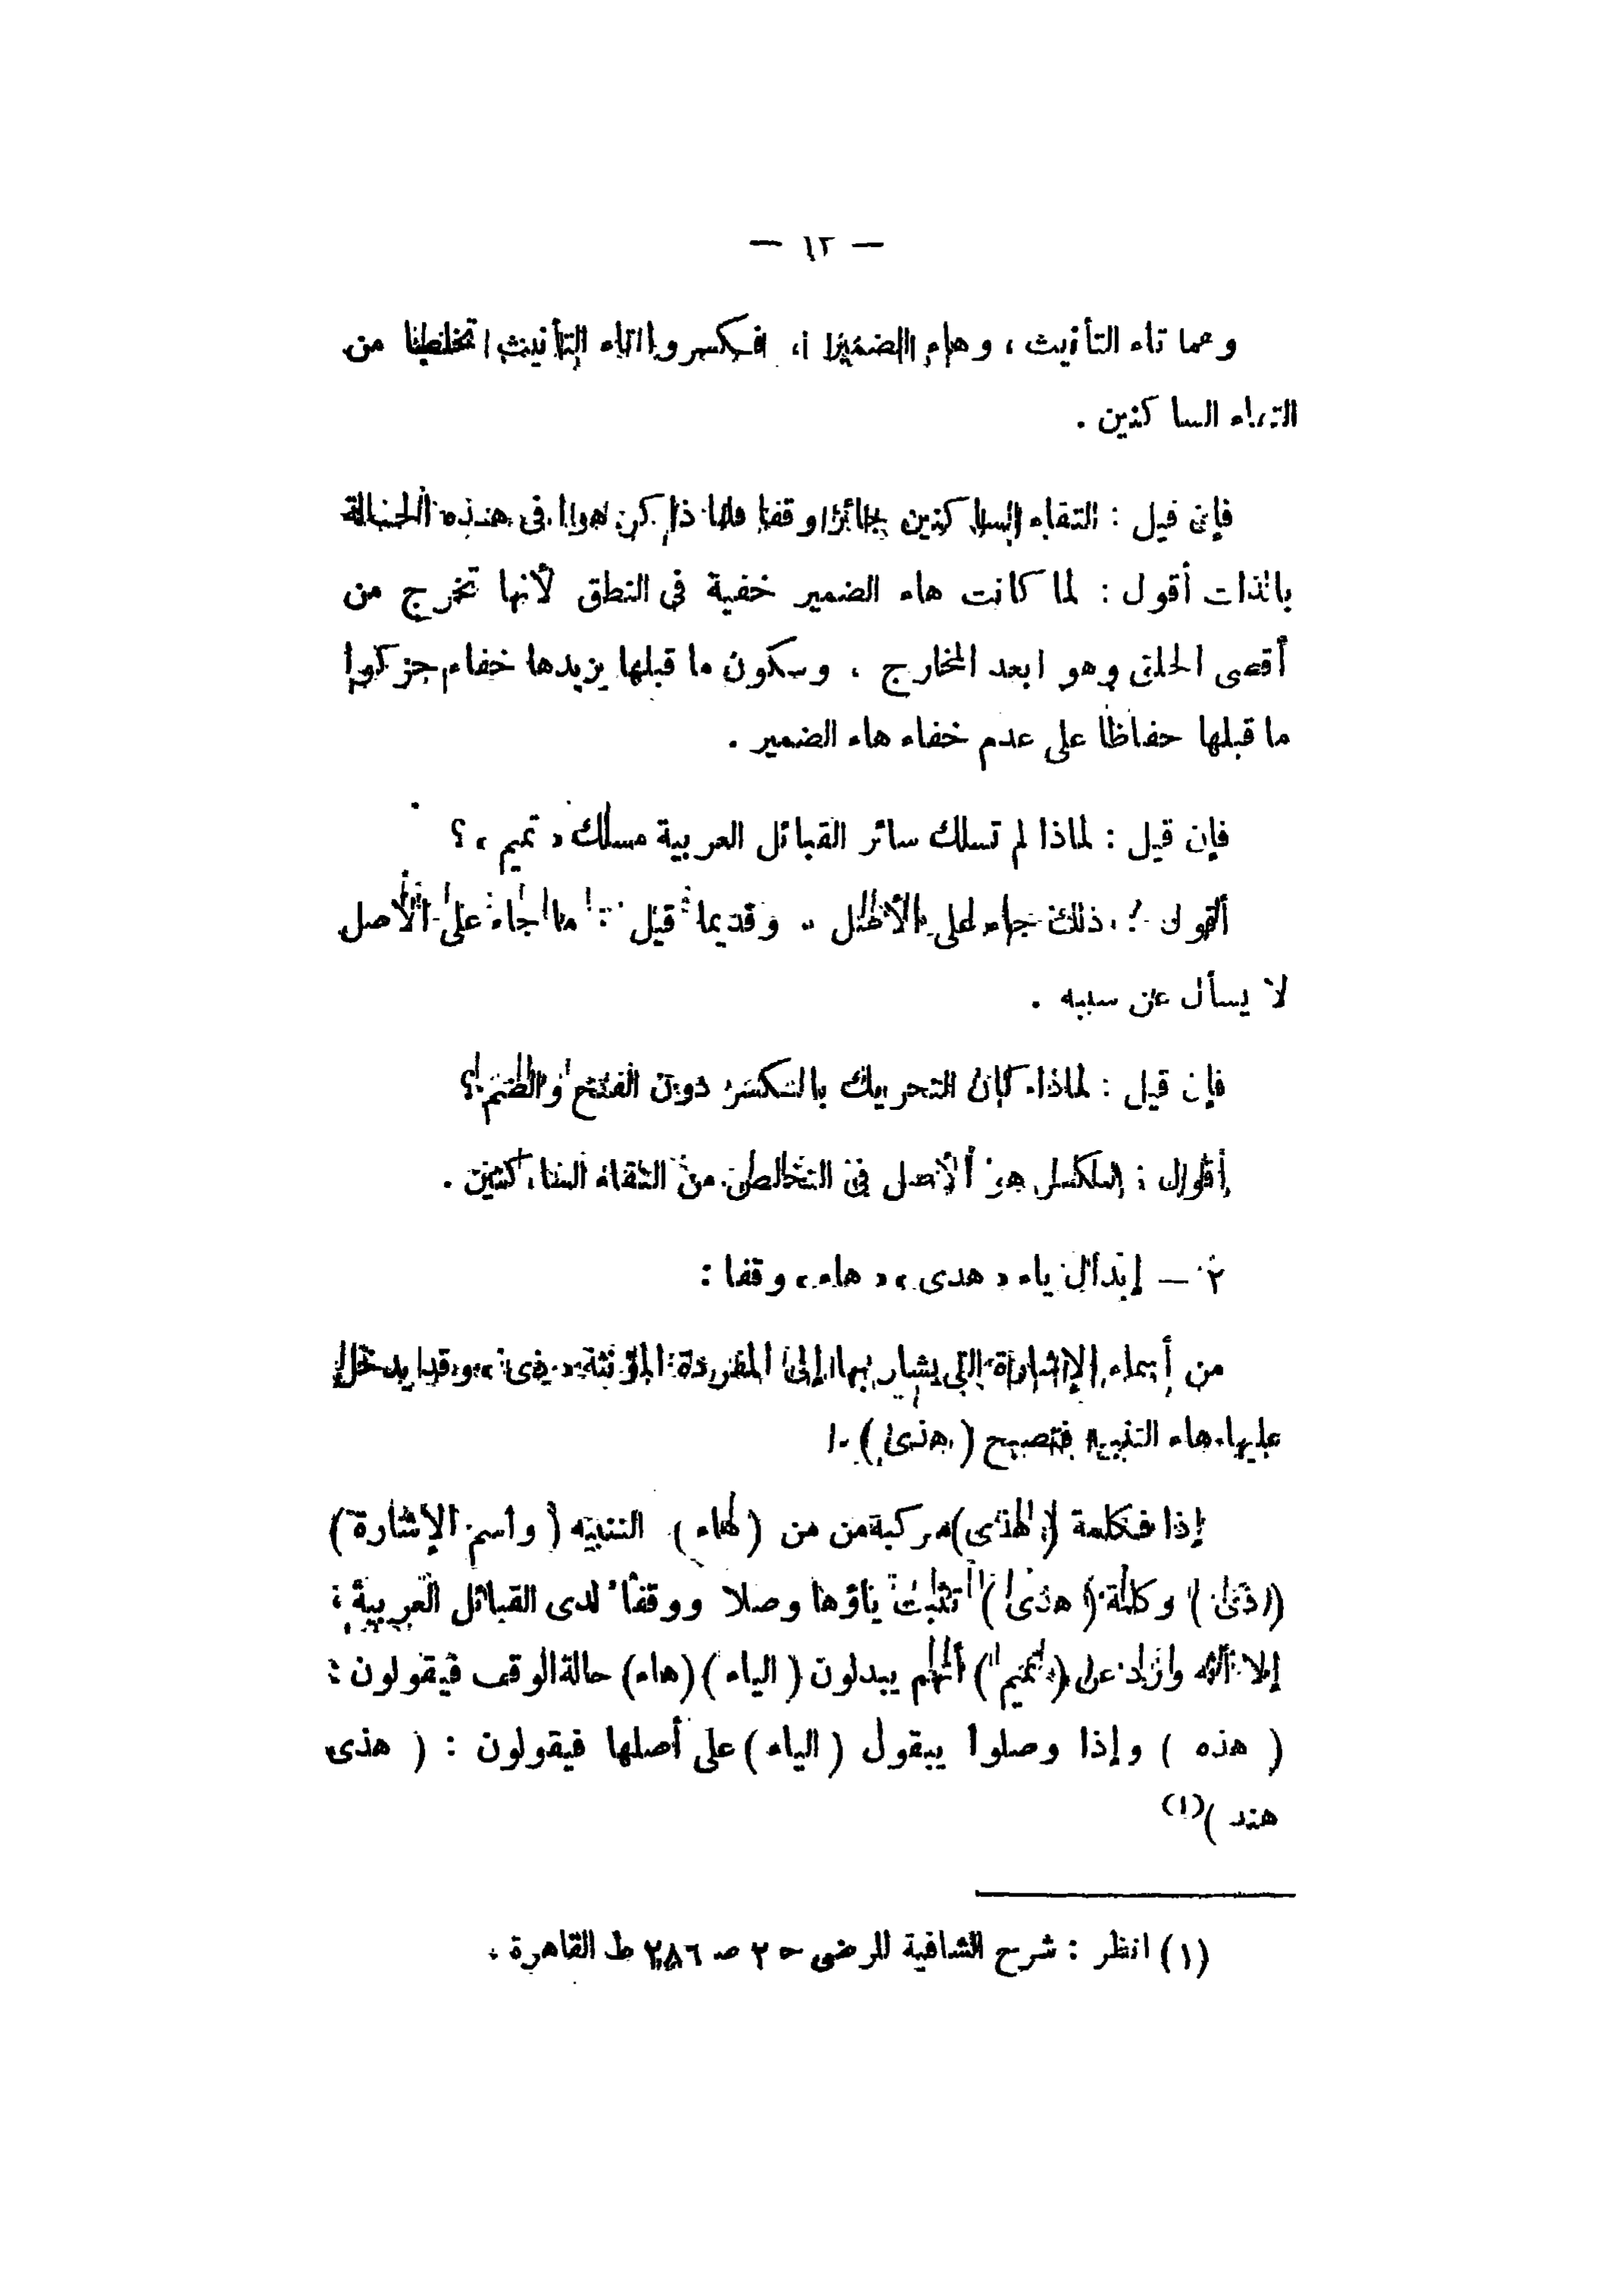 — ١٢ —
وهما تاء التأنيث ، وهاء الضمير ، فكسروا تاء التأنيث تخلصا من
التقاء الساكنين .
فإن قيل : التقاء الساكنين جائز وقفا فلماذا كرهوا في هذه الحالة
بالذات أقول : لما كانت هاء الضمير خفية في النطق لأنها تخرج من
أقصى الحلق وهو ابعد المخارج ، وسكون ما قبلها يزيدها خفاء حركوا
ما قبلها حفاظا على عدم خفاء هاء الضمير .
فإن قيل : لماذا لم تسلك سائر القبائل العربية مسلك « تميم » ؟
أقول : ذلك جاء على الأصل .. وقديما قيل : ما جاء على الأصل
لا يسأل عن سببه .
فإن قيل : لماذا كان التحريك بالكسر دون الفتح والضم ؟
أقول : الكسر هو الأصل في التخلص من التقاء الساكنين .
٢ — إبدال ياء « هذى » « هاء » وقفا :
من أسماء الإشارة التي يشار بها إلى المفردة المؤنثة « ذى » وقد يدخل
عليها هاء التنبيه فتصبح ( هذى ) .
إذا فكلمة ( هذى ) مركبة من من ( هاء ) التنبيه ( واسم الإشارة )
( ذى ) وكلمة ( هذى ) تثبت ياؤها وصلا ووقفا لدى القبائل العربية ،
إلا أنه وارد عن ( تميم ) أنهم يبدلون ( الياء ) ( هاء ) حالة الوقف فيقولون :
( هذه ) وإذا وصلوا يبقول ( الياء ) على أصلها فيقولون : ( هذى
هند ) (١)
(١) انظر : شرح الشافية للرضى حـ ٢ صـ ٢٨٦ ط القاهرة .